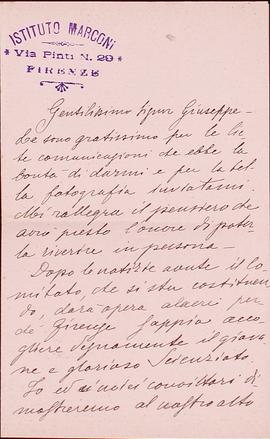 ISTITUTO MARCONI
* Via Pinti N. 29 *
FIRENZE
Gentilissimo Signor Giuseppe
Le sono gratissimo per le lie-
te comunicazioni che ebbe la
bontà di darmi e per la bel-
la fotografia inviatami.
Mi rallegra il pensiero che
avrò presto l'onore di poter-
la riverire in persona —
Dopo le notizie avute il Co-
mitato, che si sta costituen-
do, darà opera alacre per-
chè Firenze sappia acco-
gliere degnamente il giova-
ne e glorioso Scienziato.
Io ed i miei convittori di-
mostreremo al nostro alto